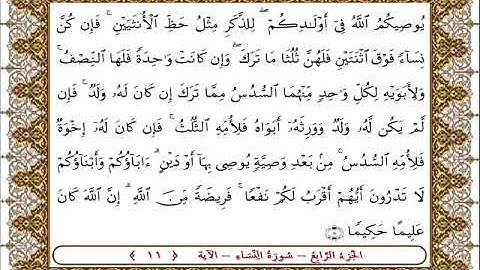 يُوصِيكُمُ اللَّهُ فِىٓ أَوْلَٰدِكُمْ ۖ لِلذَّكَرِ مِثْلُ حَظِّ الْأُنثَيَيْنِ ۚ فَإِن كُنَّ
نِسَآءً فَوْقَ اثْنَتَيْنِ فَلَهُنَّ ثُلُثَا مَا تَرَكَ ۖ وَإِن كَانَتْ وَٰحِدَةً فَلَهَا النِّصْفُ ۚ
وَلِأَبَوَيْهِ لِكُلِّ وَٰحِدٍ مِّنْهُمَا السُّدُسُ مِمَّا تَرَكَ إِن كَانَ لَهُۥ وَلَدٌ ۚ فَإِن
لَّمْ يَكُن لَّهُۥ وَلَدٌ وَوَرِثَهُۥٓ أَبَوَاهُ فَلِأُمِّهِ الثُّلُثُ ۚ فَإِن كَانَ لَهُۥٓ إِخْوَةٌ
فَلِأُمِّهِ السُّدُسُ ۚ مِنۢ بَعْدِ وَصِيَّةٍ يُوصِى بِهَآ أَوْ دَيْنٍ ۗ ءَابَآؤُكُمْ وَأَبْنَآؤُكُمْ
لَا تَدْرُونَ أَيُّهُمْ أَقْرَبُ لَكُمْ نَفْعًا ۚ فَرِيضَةً مِّنَ اللَّهِ ۗ إِنَّ اللَّهَ كَانَ
عَلِيمًا حَكِيمًا ۝١١
الجزء الرّابع - سورة النّساء - الآية ﴿ ١١ ﴾